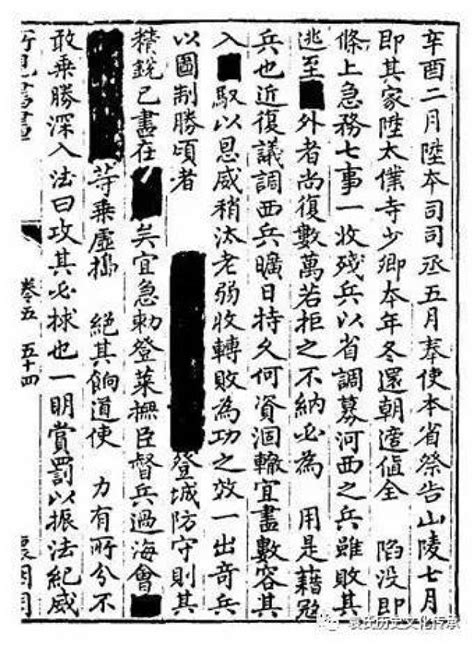 辛酉二月陞本司司丞五月奉使本省祭告山陵七月
即其家陞太僕寺少卿本年冬還朝遼值全 陷没即
條上急務七事一收残兵以省調募河西之兵雖敗其
逃至 外者尚復數萬若拒之不納必為 用是藉寇
兵也近復議調西兵曠日持久何資涸轍宜盡數容其
入 馭以恩威稍汰老弱收轉敗為功之效一出奇兵
以圖制勝頃者 登城防守則其
精銳已盡在 矣宜急勅登萊撫臣督兵過海會
等乗虚搗 絕其餉道使 力有所分不
敢乗勝深入法曰攻其必捄也一明賞罰以振法紀威
卷五 五十四
袁氏历史文化传承